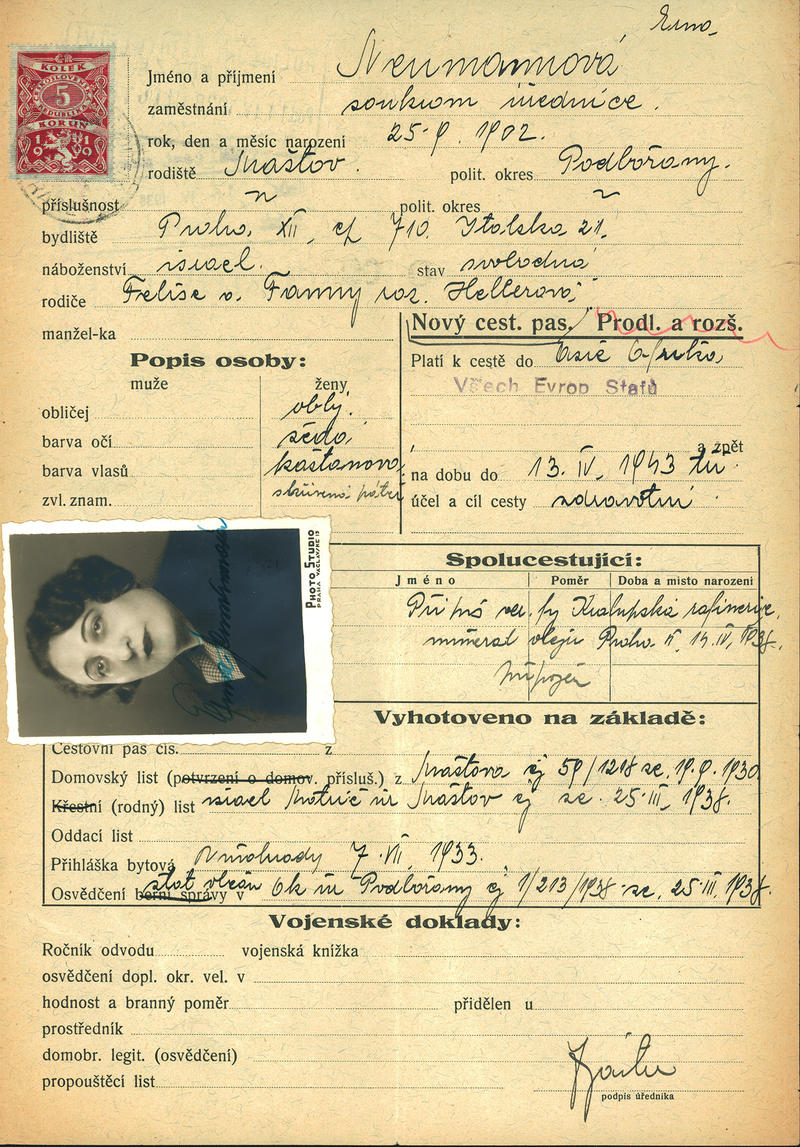 Erna
KOLEK
5
KORUN
Jméno a příjmení Neumannová
zaměstnání soukrom úřednice.
rok, den a měsíc narození 25. 9. 1902.
rodiště Maštov. polit. okres Podbořany.
příslušnost polit. okres
bydliště Praha XII, čp 710. Italská 21.
náboženství israel. stav svobodná
rodiče Felise a Fanny roz. Hellerová
manžel-ka Nový cest. pas. Prodl. a rozš.
Popis osoby: Platí k cestě do Asie Afrika
muže ženy Všech Evrop Států
obličej oblý.
barva očí šedá a zpět
barva vlasů kaštanová na dobu do 13. IV. 1943
zvl. znam. účel a cíl cesty zdravotní
PHOTO STUDIO
PRAHA VÁCLAVSKÉ
Spolucestující:
Jméno Poměr Doba a místo narození
Kralupská rafinerie
minerál olejů Praha II, 14. IV. 1938.
Vyhotoveno na základě:
Cestovní pas čís. z
Domovský list (potvrzení o domov. přísluš.) z Maštova čj 59/1218 ze 19. 9. 1930
Křestní (rodný) list israel Matrič úř Maštov čj ze 25. III. 1938.
Oddací list
Přihláška bytová Vinohrady 7. VII. 1933.
Osvědčení berní správy v Podbořany čj 1/213/1938 ze 25. III. 1938.
Vojenské doklady:
Ročník odvodu vojenská knížka
osvědčení dopl. okr. vel. v
hodnost a branný poměr přidělen u
prostředník
domobr. legit. (osvědčení)
propouštěcí list
podpis úředníka